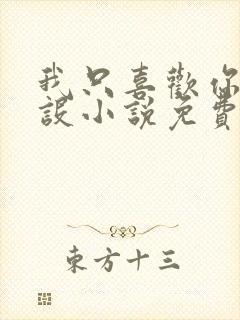 我只喜歡你
設小說免費
東方十三